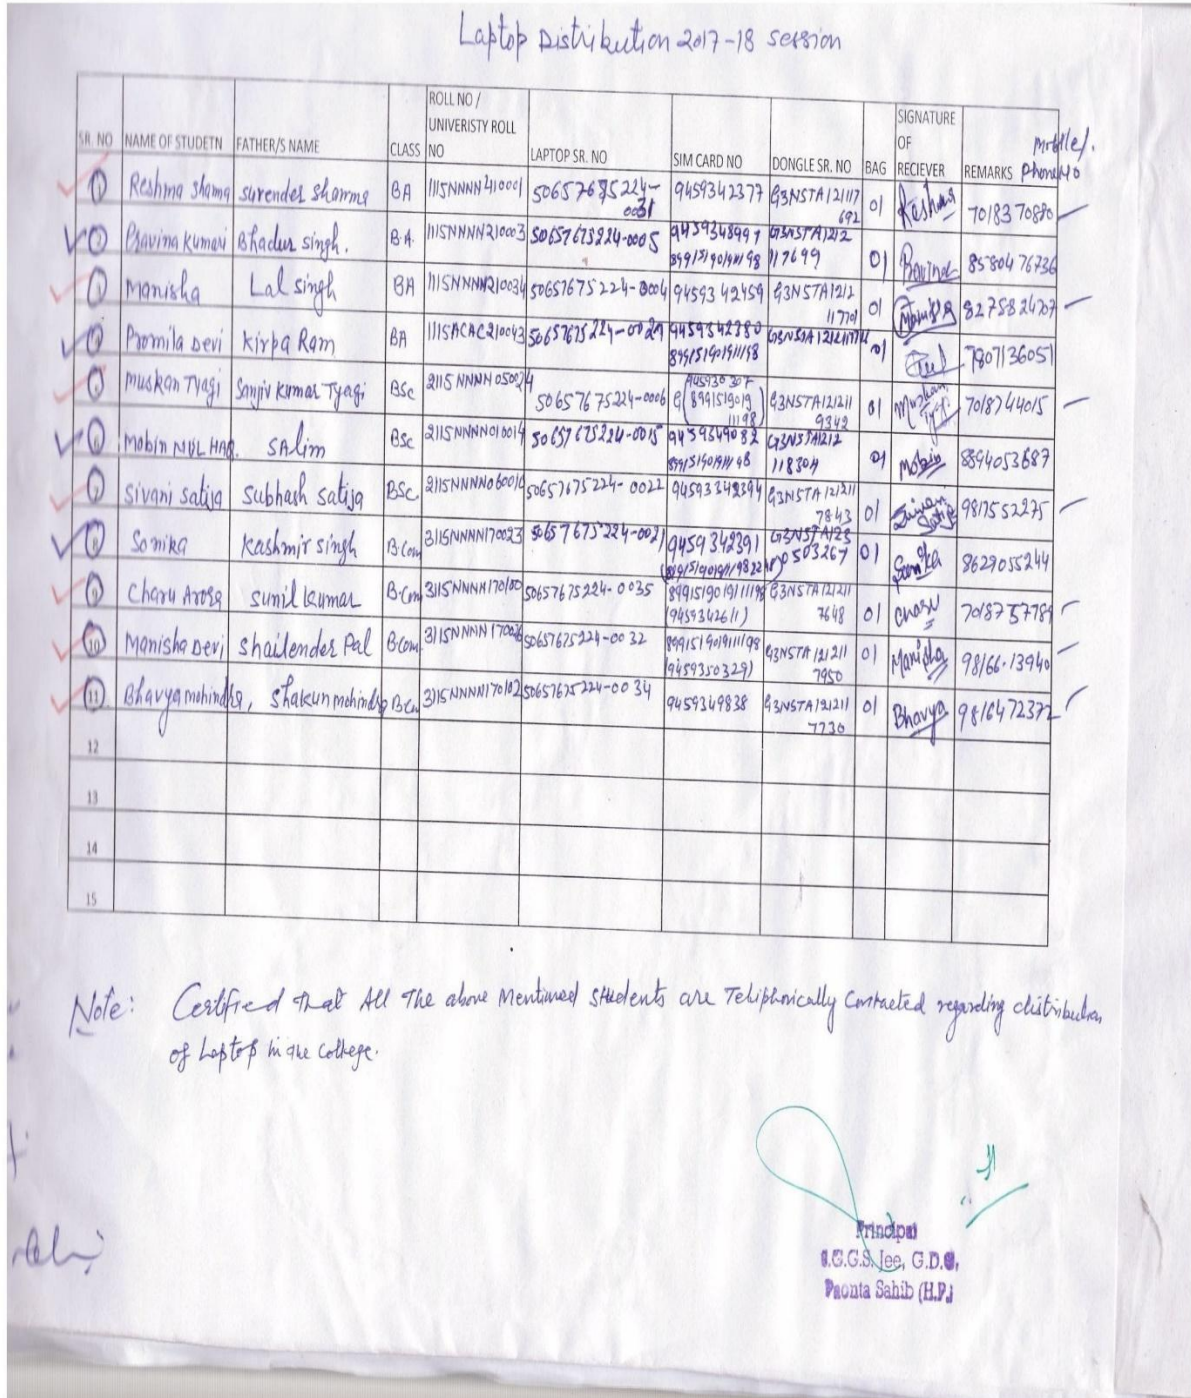 Laptop Distribution 2017-18 session
SR. NO NAME OF STUDETN FATHER/S NAME CLASS ROLL NO / UNIVERISTY ROLL NO LAPTOP SR. NO SIM CARD NO DONGLE SR. NO BAG SIGNATURE OF RECIEVER REMARKS Phone No
1 Reshma Shama Surender Sharma BA 1115NNNN410001 50657675224-0031 9459342377 G3NSTA121117692 01 Reshma 7018370880
2 Pravina Kumari Bhadur Singh. B.A. 1115NNNN210003 50657675224-0005 9459348997 G3NSTA1212117699 01 8580476736
Manisha Lal Singh BA 1115NNNN210034 50657675224-0004 9459342459 G3NSTA1212117701 01 Manisha 8275824707
Promila Devi Kirpa Ram BA 1115ACAC210043 50657675224-0029 9459342380 01 7807136051
Muskan Tyagi Sanjiv Kumar Tyagi BSc 2115NNNN050024 50657675224-0006 G3NSTA1212119342 01 Muskan Tyagi 7018744015
6 Mobin NUL HAQ. SAlim BSc 2115NNNN010014 50657675224-0015 9459349082 G3NSTA1212118304 01 Mobin 8894053687
7 Sivani Satija Subhash Satija BSc. 2115NNNN060010 50657675224-0022 9459342394 G3NSTA1212117843 01 9817552275
8 Sonika Kashmir Singh B.Com 3115NNNN170023 50657675224-0021 9459342391 01 Sonika 8629055244
9 Charu Arora Sunil Kumar B.Com 3115NNNN170100 50657675224-0035 (9459342611) G3NSTA1212117648 01 Charu 7018757789
10 Manisha Devi Shailender Pal B.Com 3115NNNN170026 50657675224-0032 (9459350329) G3NSTA1212117950 01 Manisha 98166-13940
11 Bhavya mohindra, Shakun mohindra B.Com 3115NNNN170102 50657675224-0034 9459349838 G3NSTA1212117730 01 Bhavya 9816472372
12
13
14
15
Note: Certified that All The above Mentioned students are Teliphonically Contacted regarding distribution
of Laptop in the College.
Principal
S.G.G.S. Jee, G.D.C.
Paonta Sahib (H.P.)